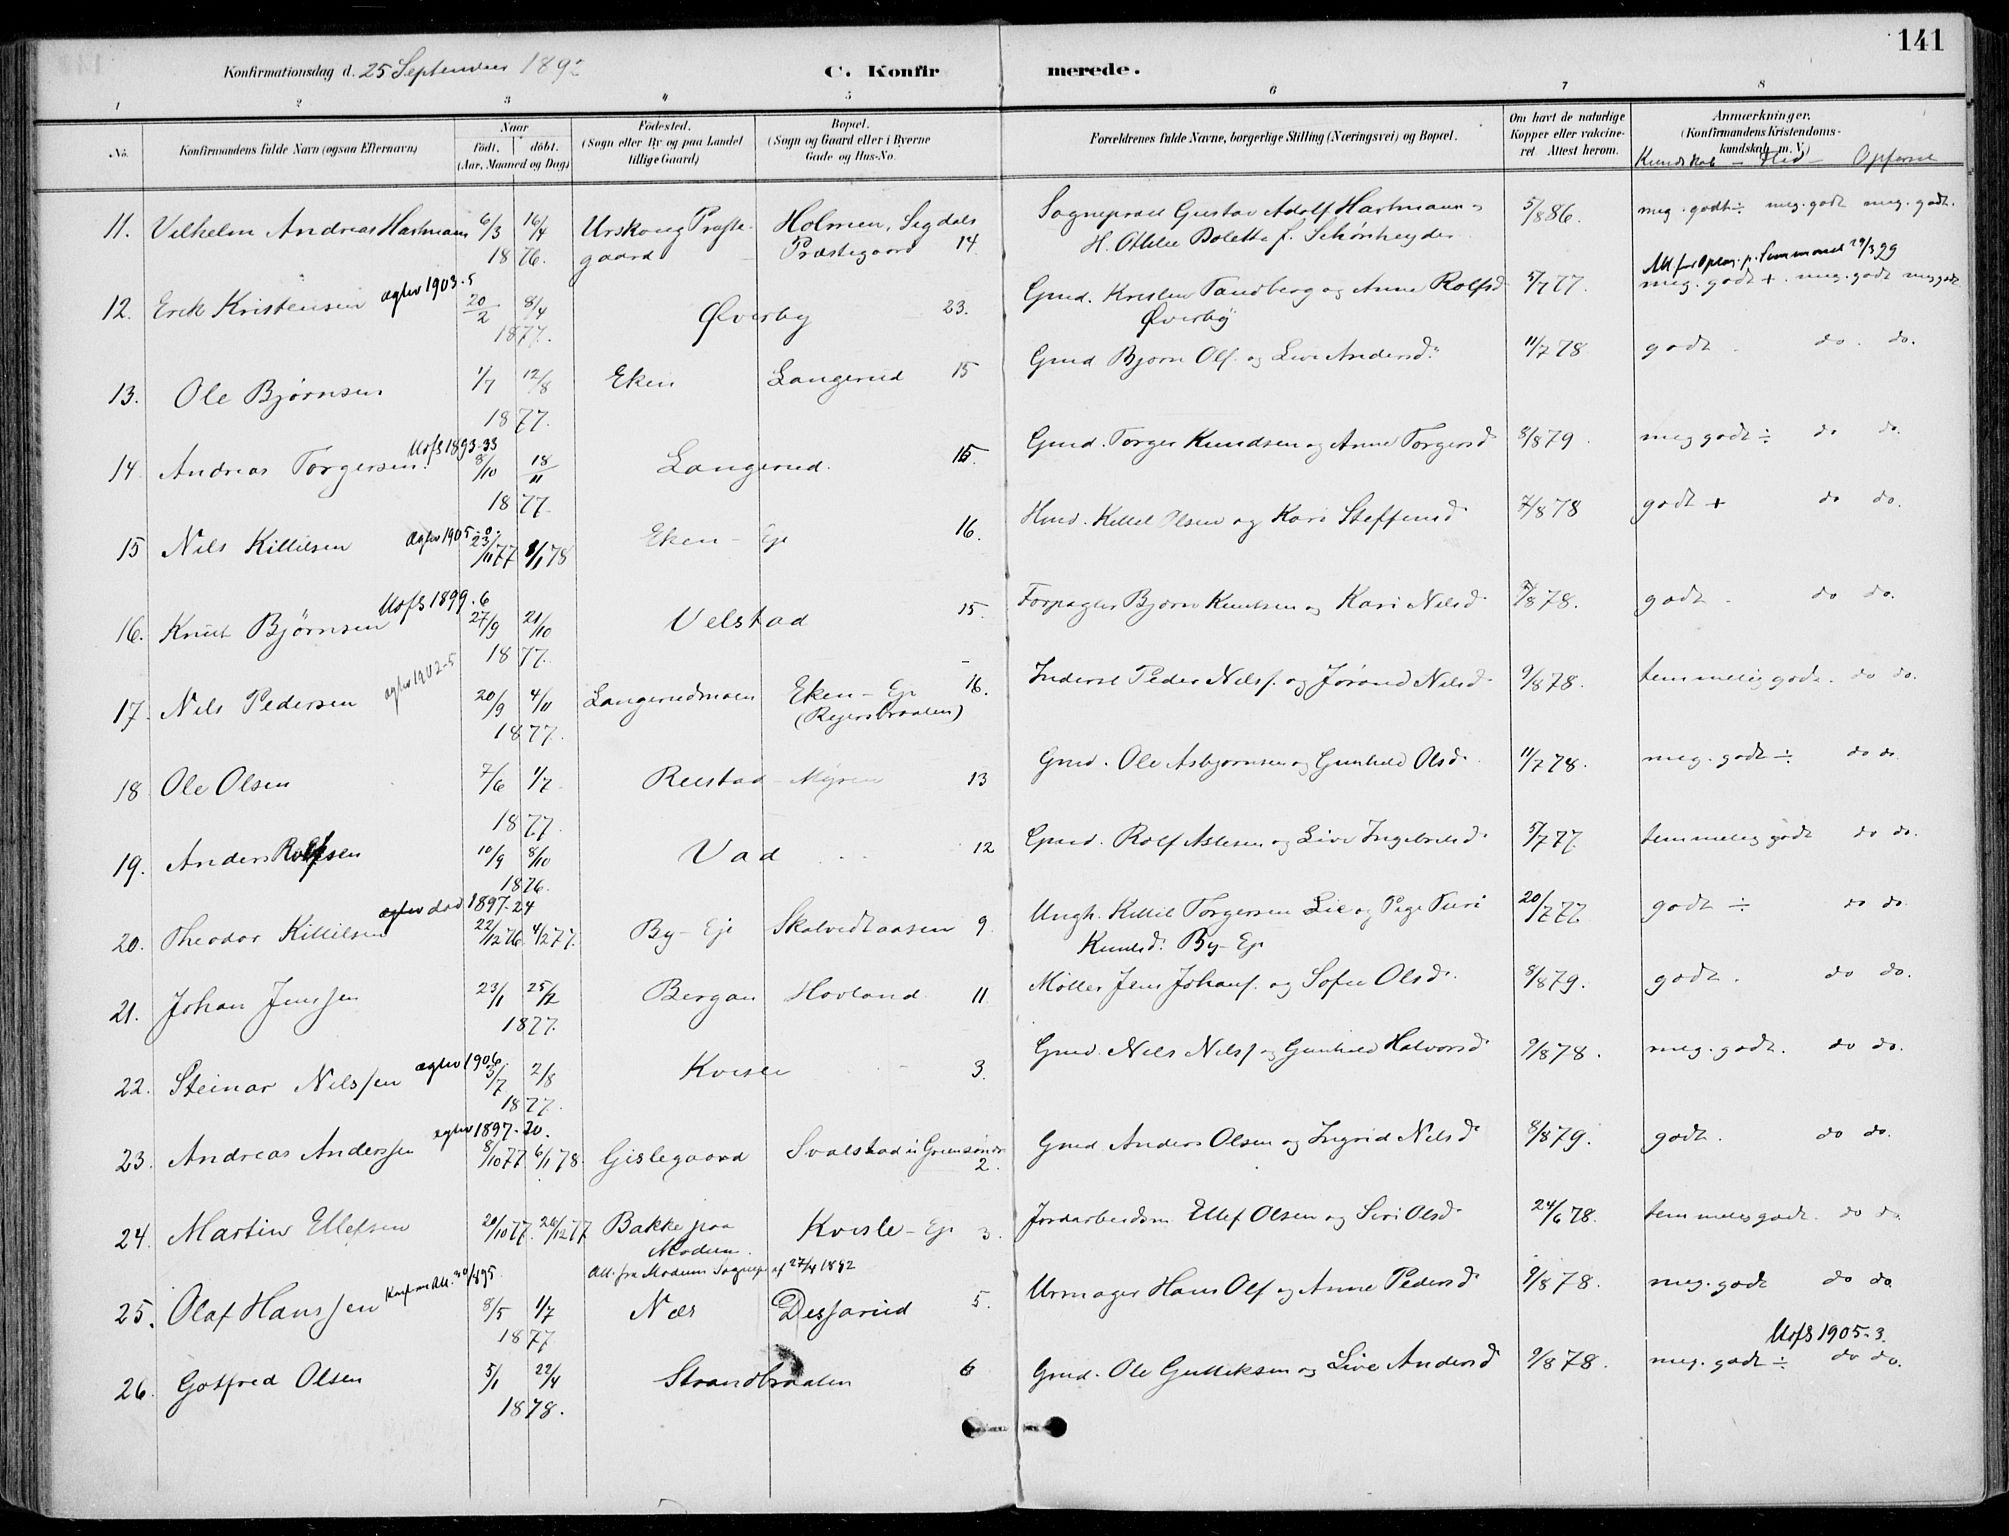 141
Konfirmationsdag d. 25 September 1892
C. Konfirmerede.
1 2 3 4 5 6 7 8
No. Konfirmandens fulde Navn (ogsaa Efternavn) Naar født. døbt. (Aar, Maaned og Dag) Fødested. (Sogn eller By og paa Landet tillige Gaard) Bopæl. (Sogn og Gaard eller i Byerne Gade og Hus-No. Forældrenes fulde Navne, borgerlige Stilling (Næringsvei) og Bopæl. Om havt de naturlige Kopper eller vakcineret. Attest herom. Anmærkninger. (Konfirmandens Kristendomskundskab m. V.)
Kundskab - Flid - Opførsel
11. Vilhelm Andreas Hartmann 6/3 16/4 Urskoug Præste- Holmen, Sigdals Sogneprest Gustav Adolf Hartmann og 5/8 86. meg. godt ÷ meg. godt meg. godt.
1876. gaard Præstegaard 14 H. Othilie Bolette f. Schønheyder
Att for Oplsn. p. Simmoned 29/3 29
12. Erik Kristensen aegtev 1903-5 20/2 8/4 Øverby 23. Gmd. Kristen Tandberg og Anne Rolfsd. 5/7 77. meg. godt +. meg. godt meg godt
1877. Øverby
13. Ole Bjørnsen 1/7 12/8 Eken Langerud 15 Gmd Bjørn Ols. og Live Andersd. 11/7 78 godt do. do.
1877.
14. Andreas Torgersen Utfl 1893-33 8/10 18/11 Langerud. 15. Gmd. Torger Knudsen og Anne Torgersd. 8/8 79. meg godt ÷ do do.
1877
15 Nils Killilsen aegtev 1905-9 23/11 77 8/1 78 Eken - Eje 16. Hmd. Kittil Olsen og Kari Steffensd. 7/8 78 godt + do do.
16. Knut Bjørnsen Utfl 1899-6 27/9 21/10 Velstad 15. Forpagter Bjørn Knutsen og Kari Nilsd. 7/8 78. godt do do.
1877.
17. Nils Pedersen aegtev 1902-5 20/9 4/11 Langerudmoen Eken - Eje 16. Inderst Peder Nils. og Jørand Nilsd. 9/8 78. temmelig godt. do do.
1877. (Reiersbraaten)
18 Ole Olsen 7/6 1/7 Reistad - Myren 13 Gmd. Ole Asbjørnsen og Gunhild Olsd. 11/7 78. meg. godt ÷ do do.
1877.
19. Anders Rolfsen 10/9 8/10 Vad 12 Gmd. Rolf Aslesen og Live Ingebretsd. 5/7 77. temmelig godt do do.
1876.
20. Theodor Killilsen død 1897-24 22/12 76 4/2 77. By - Eje Skalvedtaasen 9. Ungk. Kittil Torgersen Lie og Pige Turi 20/7 77. godt ÷ do do.
Knutsd. By-Eje
21. Johan Jenssen 23/1 25/2 Bergan Hovland 11. Møller Jens Johans. og Sofie Olsd. 8/8 79. godt. do do.
1877.
22. Steinar Nilssen aegtev 1906 5/7 2/8 Kvisle 3. Gmd. Nils Nilss. og Gunhild Halvorsd. 9/8 78. meg. godt. do do.
1877.
23. Andreas Anderssen egtev 1897-20. 8/10 77 6/1 78. Gislegaard Svalstad i Grensønde 2. Gmd Anders Olsen og Ingrid Nilsd. 8/8 79. godt. do do.
24. Martin Ellefsen 20/10 77. 26/12 77 Bakke paa Kvisle - Eje 3. Jordarbeiderm. Ellef Olsen og Siri Olsd. 24/6 78. temmelig godt. do do.
Modum.
Att. fra Modum Sognepr. af 27/4 1882
25. Olaf Hanssen Konf. Att. 30/8 95 8/5 1/7 Næs Desjarud 5. Urmager Hans Ols. og Anne Pedersd. 9/8 78. meg. godt do do
1877
Utfl 1905-3.
26. Gotfred Olsen 5/1 22/4 Strandbraaten 6 Gmd. Ole Gulliksen og Live Andersd 9/8 78. meg. godt ÷ do do.
1878.